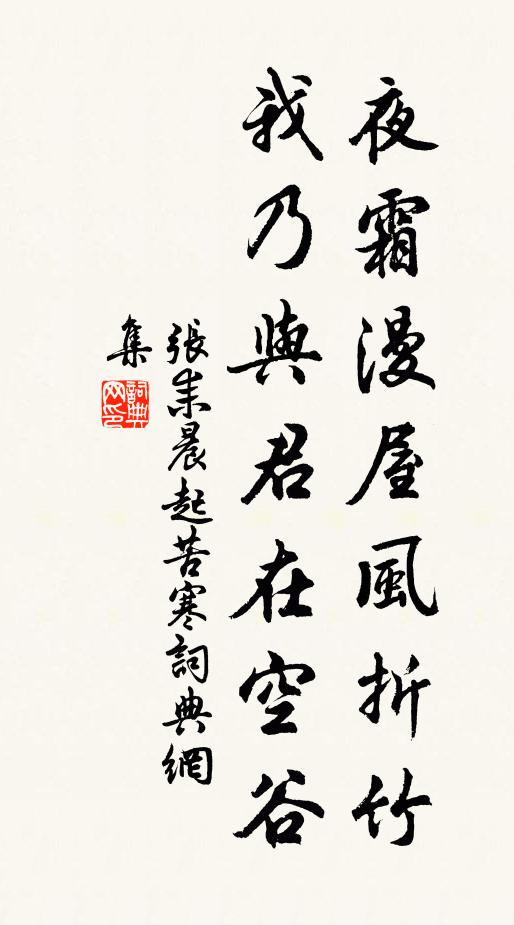 夜霜漫屋風折竹
我乃與君在空谷
張耒晨起苦寒詞典網
集
詞典
网印